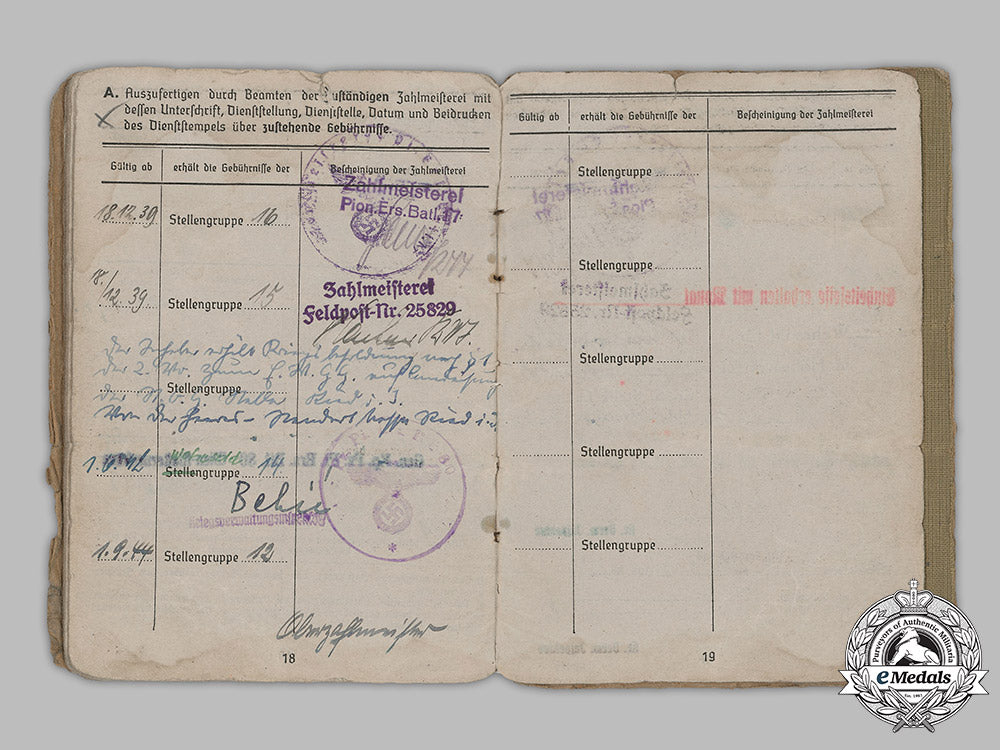 A. Auszufertigen durch Beamten der zuständigen Zahlmeisterei mit
dessen Unterschrift, Dienststellung, Dienststelle, Datum und Beidrucken
des Dienststempels über zustehende Gebührnisse.
Gültig ab erhält die Gebührnisse der Bescheinigung der Zahlmeisterei
Zahlmeisterei
Pion.Ers.Batl.17
18.12.39 Stellengruppe 16
Zahlmeisterei
Feldpost-Nr. 25829
18./12.39 Stellengruppe 15
R.W.J.
der Inhaber erhält Kriegsbesoldung nach
der 2.
Stellengruppe
der Stelle Ried i. J.
Von der Heeres-Standortkasse Ried i. J.
Stellengruppe 14
Kriegsverwaltungsinspektor
1.9.44 Stellengruppe 12
Oberzahlmeister
18
Gültig ab erhält die Gebührnisse der Bescheinigung der Zahlmeisterei
Stellengruppe
Stellengruppe
Stellengruppe
Stellengruppe
Stellengruppe
19
Purveyors of Authentic Militaria
eMedals